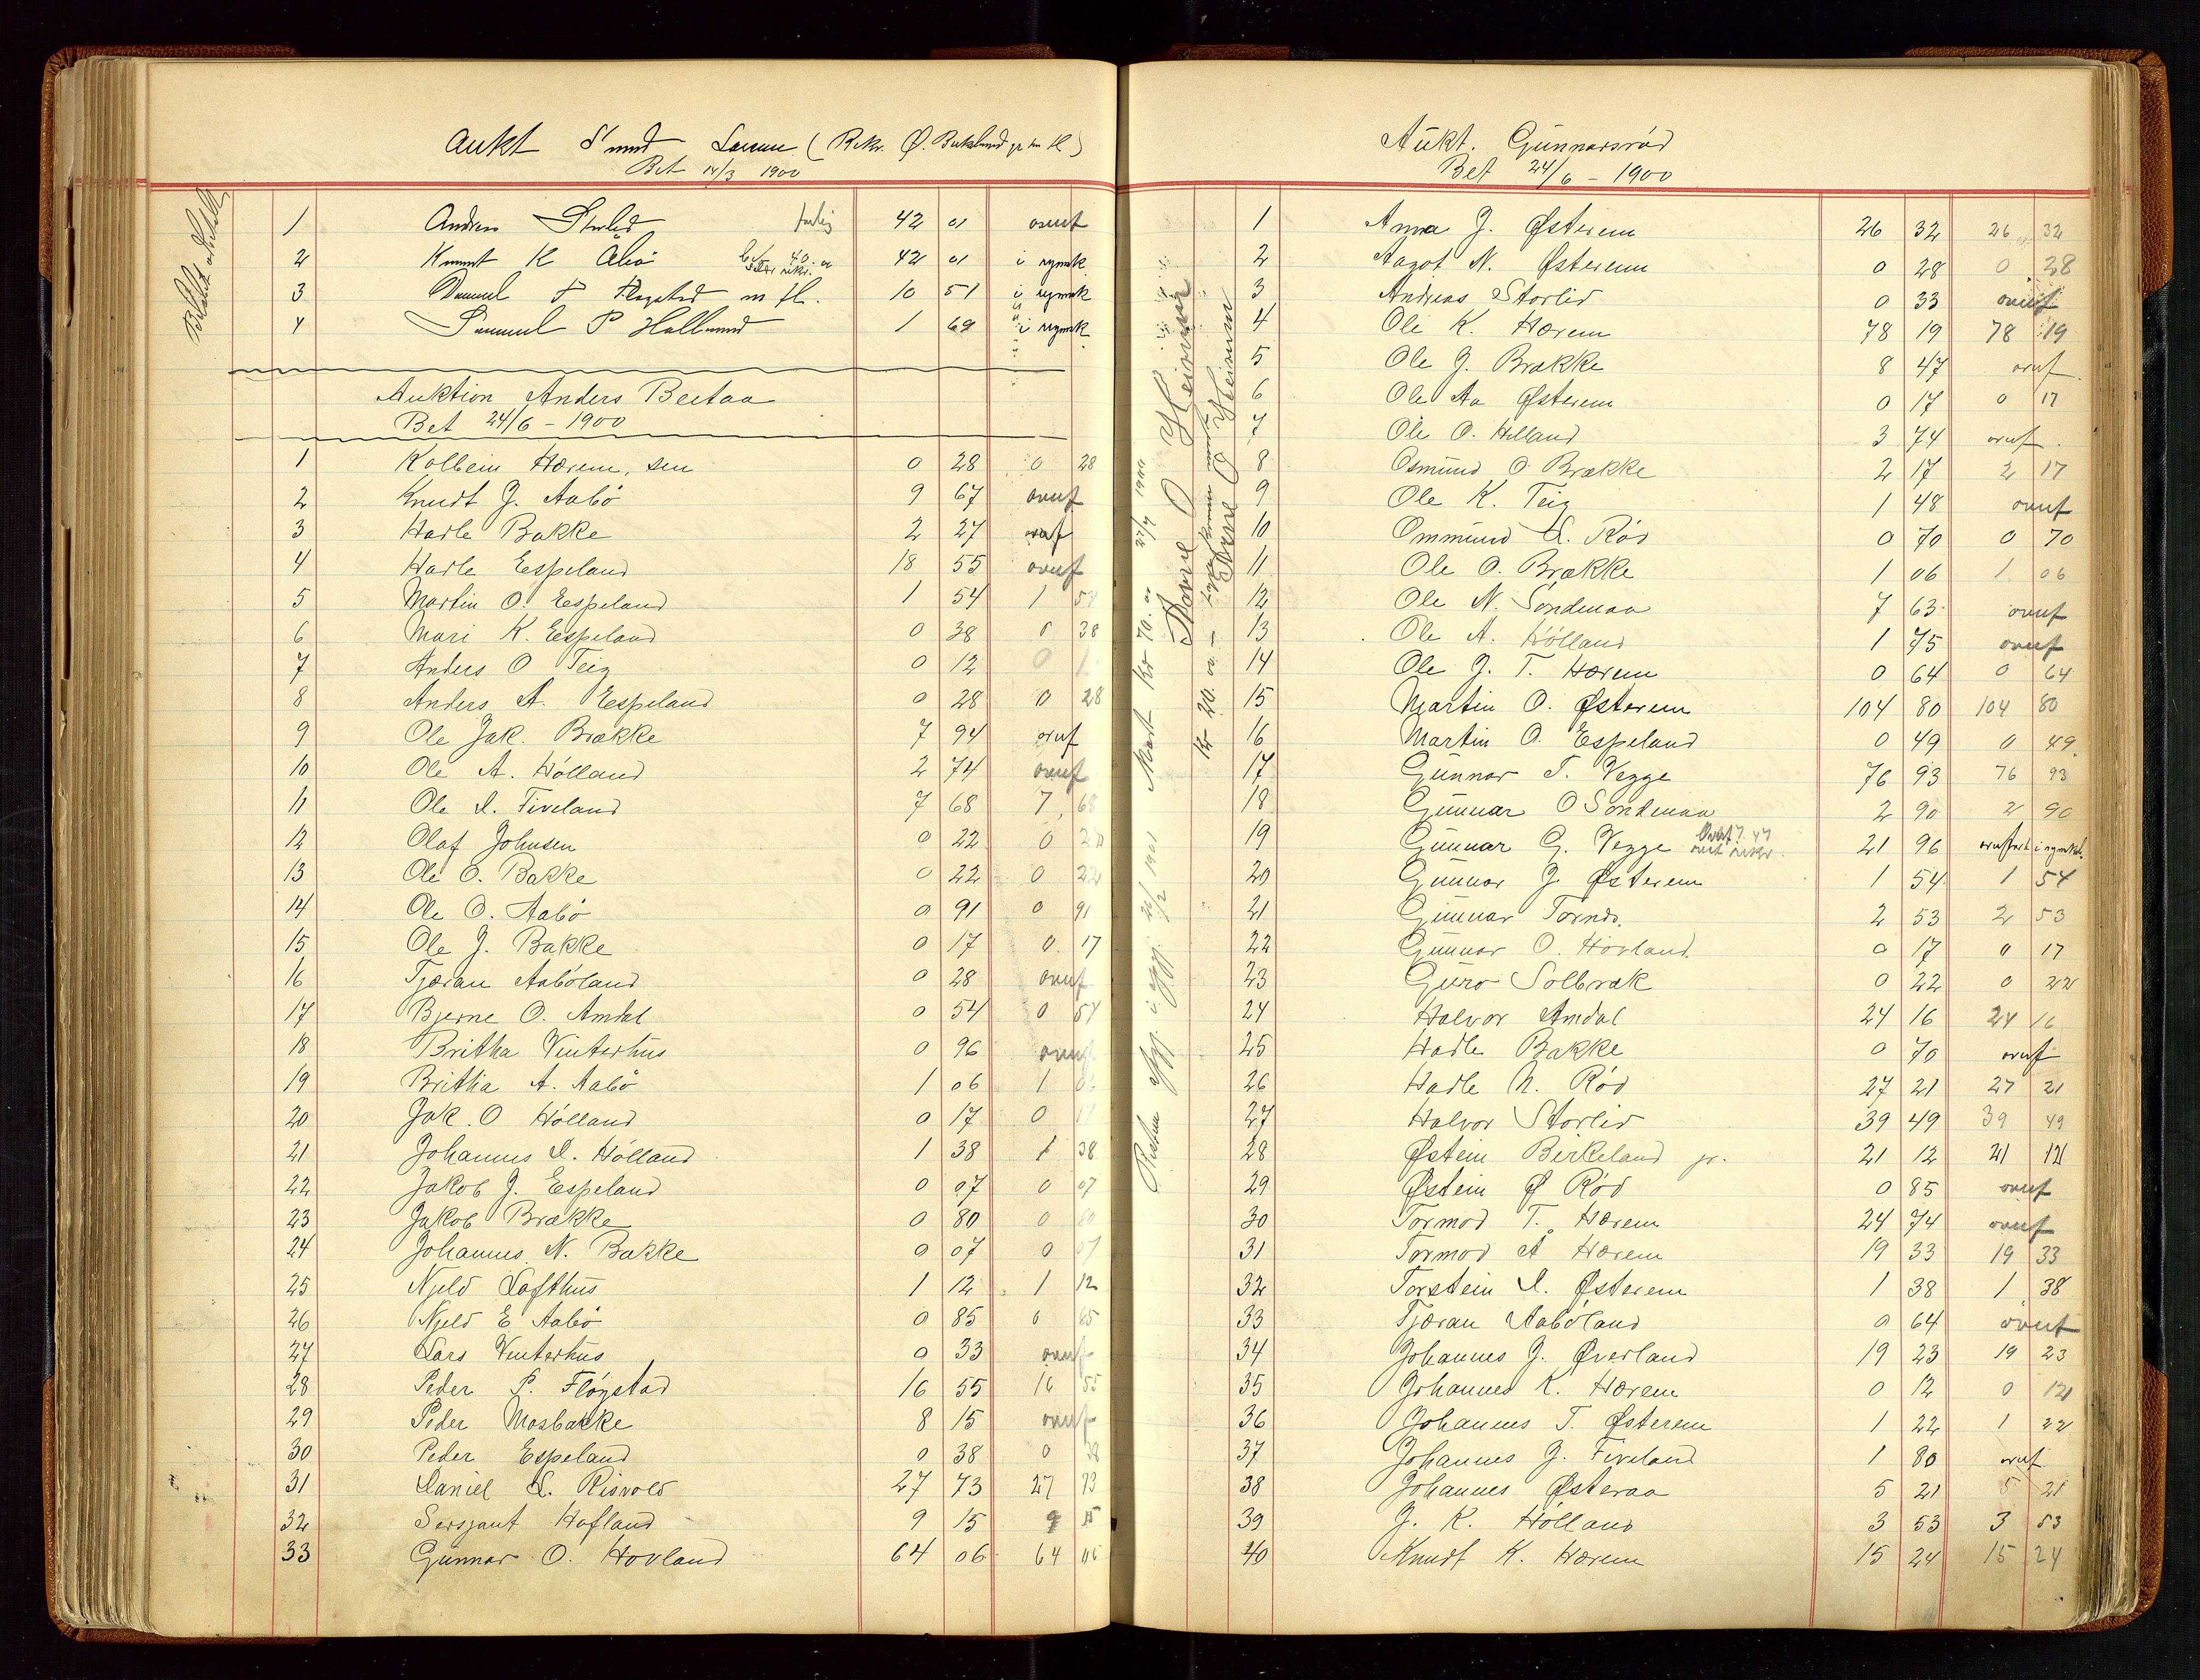 Aukt S'mund (Rekr. Ø. Birkeland jr m fl)
Bet 14/3 1900
1 Andreas Storlid 42 01 overf
2 Knut K Åbø 42 01 i regnsk
3 Samuel P Fløgstad m fl. 10 51 i regnsk
4 Samuel P Holland 1 69 i regnsk
Auktion Anders Bertaa
Bet 24/6 - 1900
1 Kolbein Hærem, sen 0 28 0 28
2 Knudt J. Aabö 9 67 overf
3 Hadle Bakke 2 27 overf
4 Hadle Espeland 18 55 overf
5 Martin O. Espeland 1 54 1 54
6 Mari K. Espeland 0 38 0 38
7 Anders O Teig 0 12 0 1
8 Anders A. Espeland 0 28 0 28
9 Ole Jak. Brække 7 94 overf
10 Ole A. Hölland 2 74 overf
11 Ole L. Tiveland 7 68 7 68
12 Olaf Johnsen 0 22 0 22
13 Ole O. Bakke 0 22 0 22
14 Ole O. Aabö 0 91 0 91
15 Ole J. Bakke 0 17 0 17
16 Tjæran Aaböland 0 28 overf
17 Bjerne O. Amdal 0 54 0 54
18 Britha Vinterhus 0 96 overf
19 Britha A. Aabö 1 06 1 06
20 Jak. O Hölland 0 17 0 17
21 Johannes L. Hölland 1 38 1 38
22 Jakob J. Espeland 0 07 0 07
23 Jakob Brække 0 80 0 80
24 Johannes N. Bakke 0 07 0 07
25 Njeld Lofthus 1 12 1 12
26 Njeld E Aabö 0 85 0 85
27 Lars Vinterhus 0 33 overf
28 Peder P. Flögstad 16 55 16 55
29 Peder Mosbakke 8 15 overf
30 Peder Espeland 0 38 0 38
31 Daniel L. Risvold 27 73 27 73
32 Sersjant Hofland 9 15 9 15
33 Gunnar O. Hovland 64 06 64 06
Aukt. Gunnarsröd
Bet 24/6 - 1900
1 Anna J. Østerem 26 32 26 32
2 Aagot N. Østerem 0 28 0 28
3 Andreas Storlid 0 33 overf
4 Ole K. Hærem 78 19 78 19
5 Ole J. Brække 8 47 overf
6 Ole Aa Østerem 0 17 0 17
7 Ole O. Hölland 3 74 overf
8 Osmund O Brække 2 17 2 17
9 Ole K. Teig 1 48 overf
10 Ommund L. Röd 0 70 0 70
11 Ole O. Brække 1 06 1 06
12 Ole N. Söndenaa 7 63 overf
13 Ole A. Hölland 1 75 overf
14 Ole J. T. Hærem 0 64 0 64
15 Martin O. Østerem 104 80 104 80
16 Martin O. Espeland 0 49 0 49
17 Gunnar T. Vegge 76 93 76 93
18 Gunnar O Söndenaa 2 90 2 90
19 Gunnar G. Vegge 21 96
20 Gunnar J. Østerem 1 54 1 54
21 Gunnar Tornds. 2 53 2 53
22 Gunnar O. Hovland 0 17 0 17
23 Guro Solbrak 0 22 0 22
24 Halvor Amdal 24 16 24 16
25 Hadle Bakke 0 70 overf
26 Hadle N. Röd 27 21 27 21
27 Halvor Storlid 39 49 39 49
28 Østein Birkeland jr. 21 12 21 12
29 Østein Ø Röd 0 85 overf
30 Tormod T. Hærem 24 74 overf
31 Tormod Å Hærem 19 33 19 33
32 Torstein L. Østerem 1 38 1 38
33 Tjæran Aaböland 0 64 overf
34 Johannes J. Øverland 19 23 19 23
35 Johannes K. Hærem 0 12 0 12
36 Johannes T. Østerem 1 22 1 22
37 Johannes J. Tiveland 1 80 overf
38 Johannes Østeraa 5 21 5 21
39 J. K. Hölland 3 53 3 53
40 Knudt K. Hærem 15 24 15 24